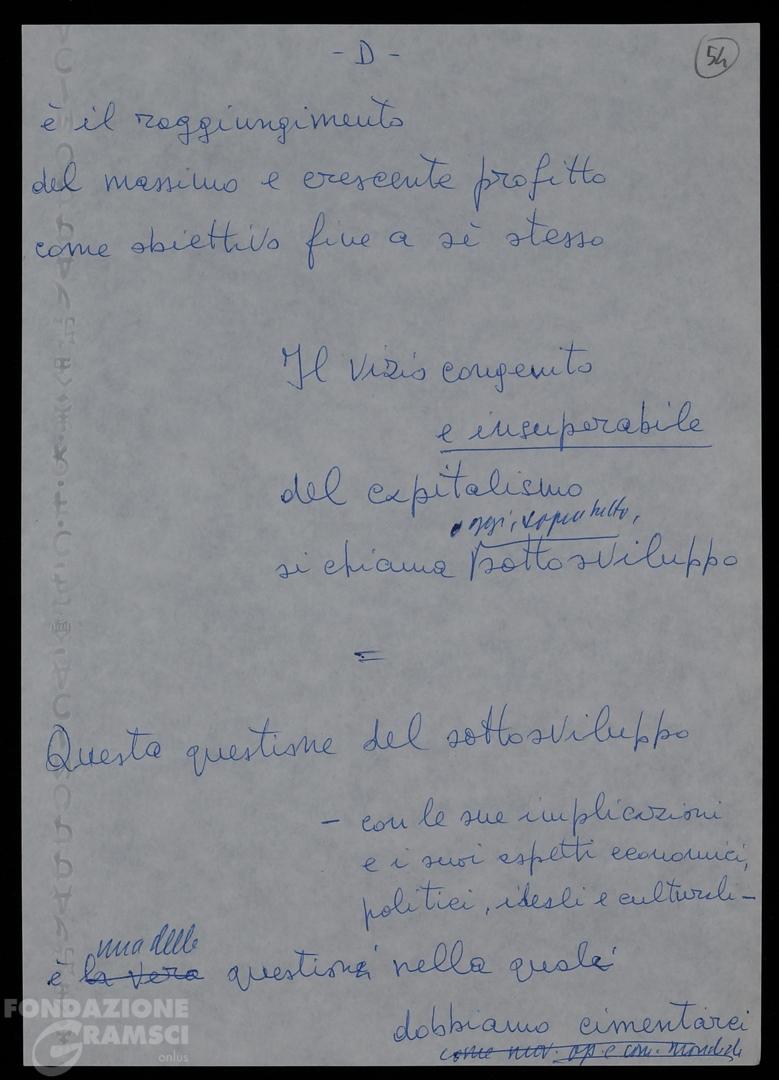 - D -
54
è il raggiungimento
del massimo e crescente profitto
come obiettivo fine a sè stesso
Il vizio congenito
e insuperabile
del capitalismo
oggi, sopratutto,
si chiama sottosviluppo
=
Questa questione del sottosviluppo
- con le sue implicazioni
e i suoi aspetti economici,
politici, ideali e culturali -
una delle
è la vera questioni nella quale
dobbiamo cimentarci
come mov. op. e com. mondiale
FONDAZIONE
GRAMSCI
onlus